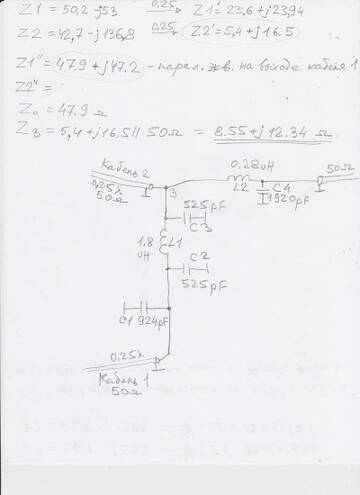 Z1 = 50,2 - j53 0,25 → Z1' = 23,6 + j23,94
Z2 = 42,7 - j136,8 0,25 → Z2' = 5,4 + j16.5
Z1" = 47.9 + j47.2 - парал. экв. на выходе кабеля 1
Z2" =
Z₀ = 47.9 Ω
Z3 = 5,4 + j16.5 || 50Ω = 8.55 + j12.34 Ω
Кабель 2
0,25λ
50Ω
3
0.28uH
L2
C4
1920pF
50Ω
525pF
C3
1.8
uH
L1
C2
525pF
C1 924pF
0.25λ
Кабель 1
50Ω